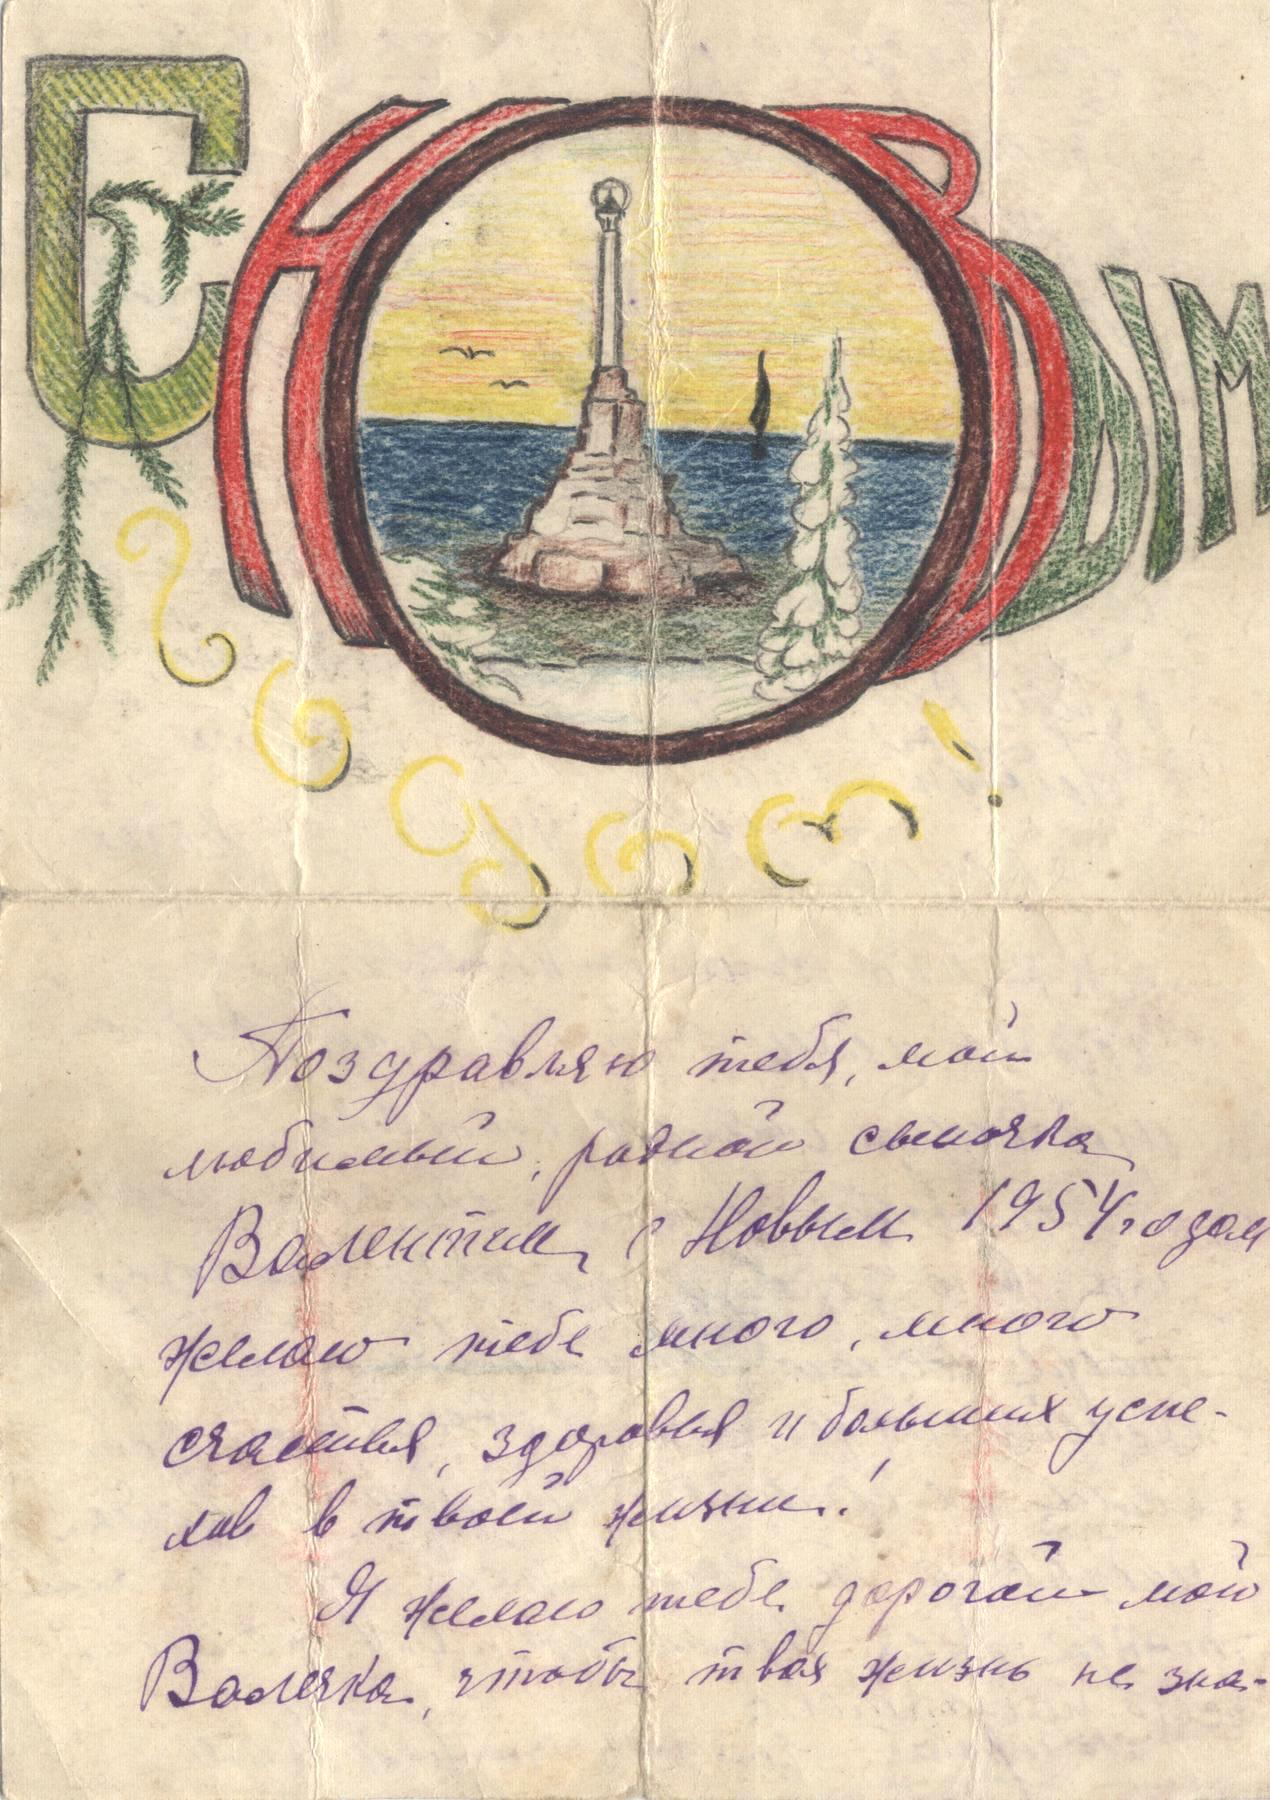 С НОВЫМ
годом!
Поздравляю тебя, мой
любимый, родной сыночка
Валентин, с Новым 1954 годом
желаю тебе много, много
счастья, здоровья и больших успе-
хов в твоей жизни!
Я желаю тебе, дорогой мой
Валечка, чтобы твоя жизнь не зна-